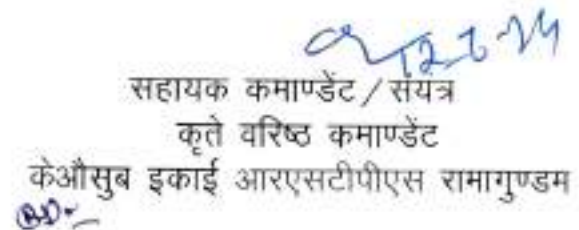 12.8.24
सहायक कमाण्डेंट/संयत्र
कृते वरिष्ठ कमाण्डेंट
केऔसुब इकाई आरएसटीपीएस रामागुण्डम